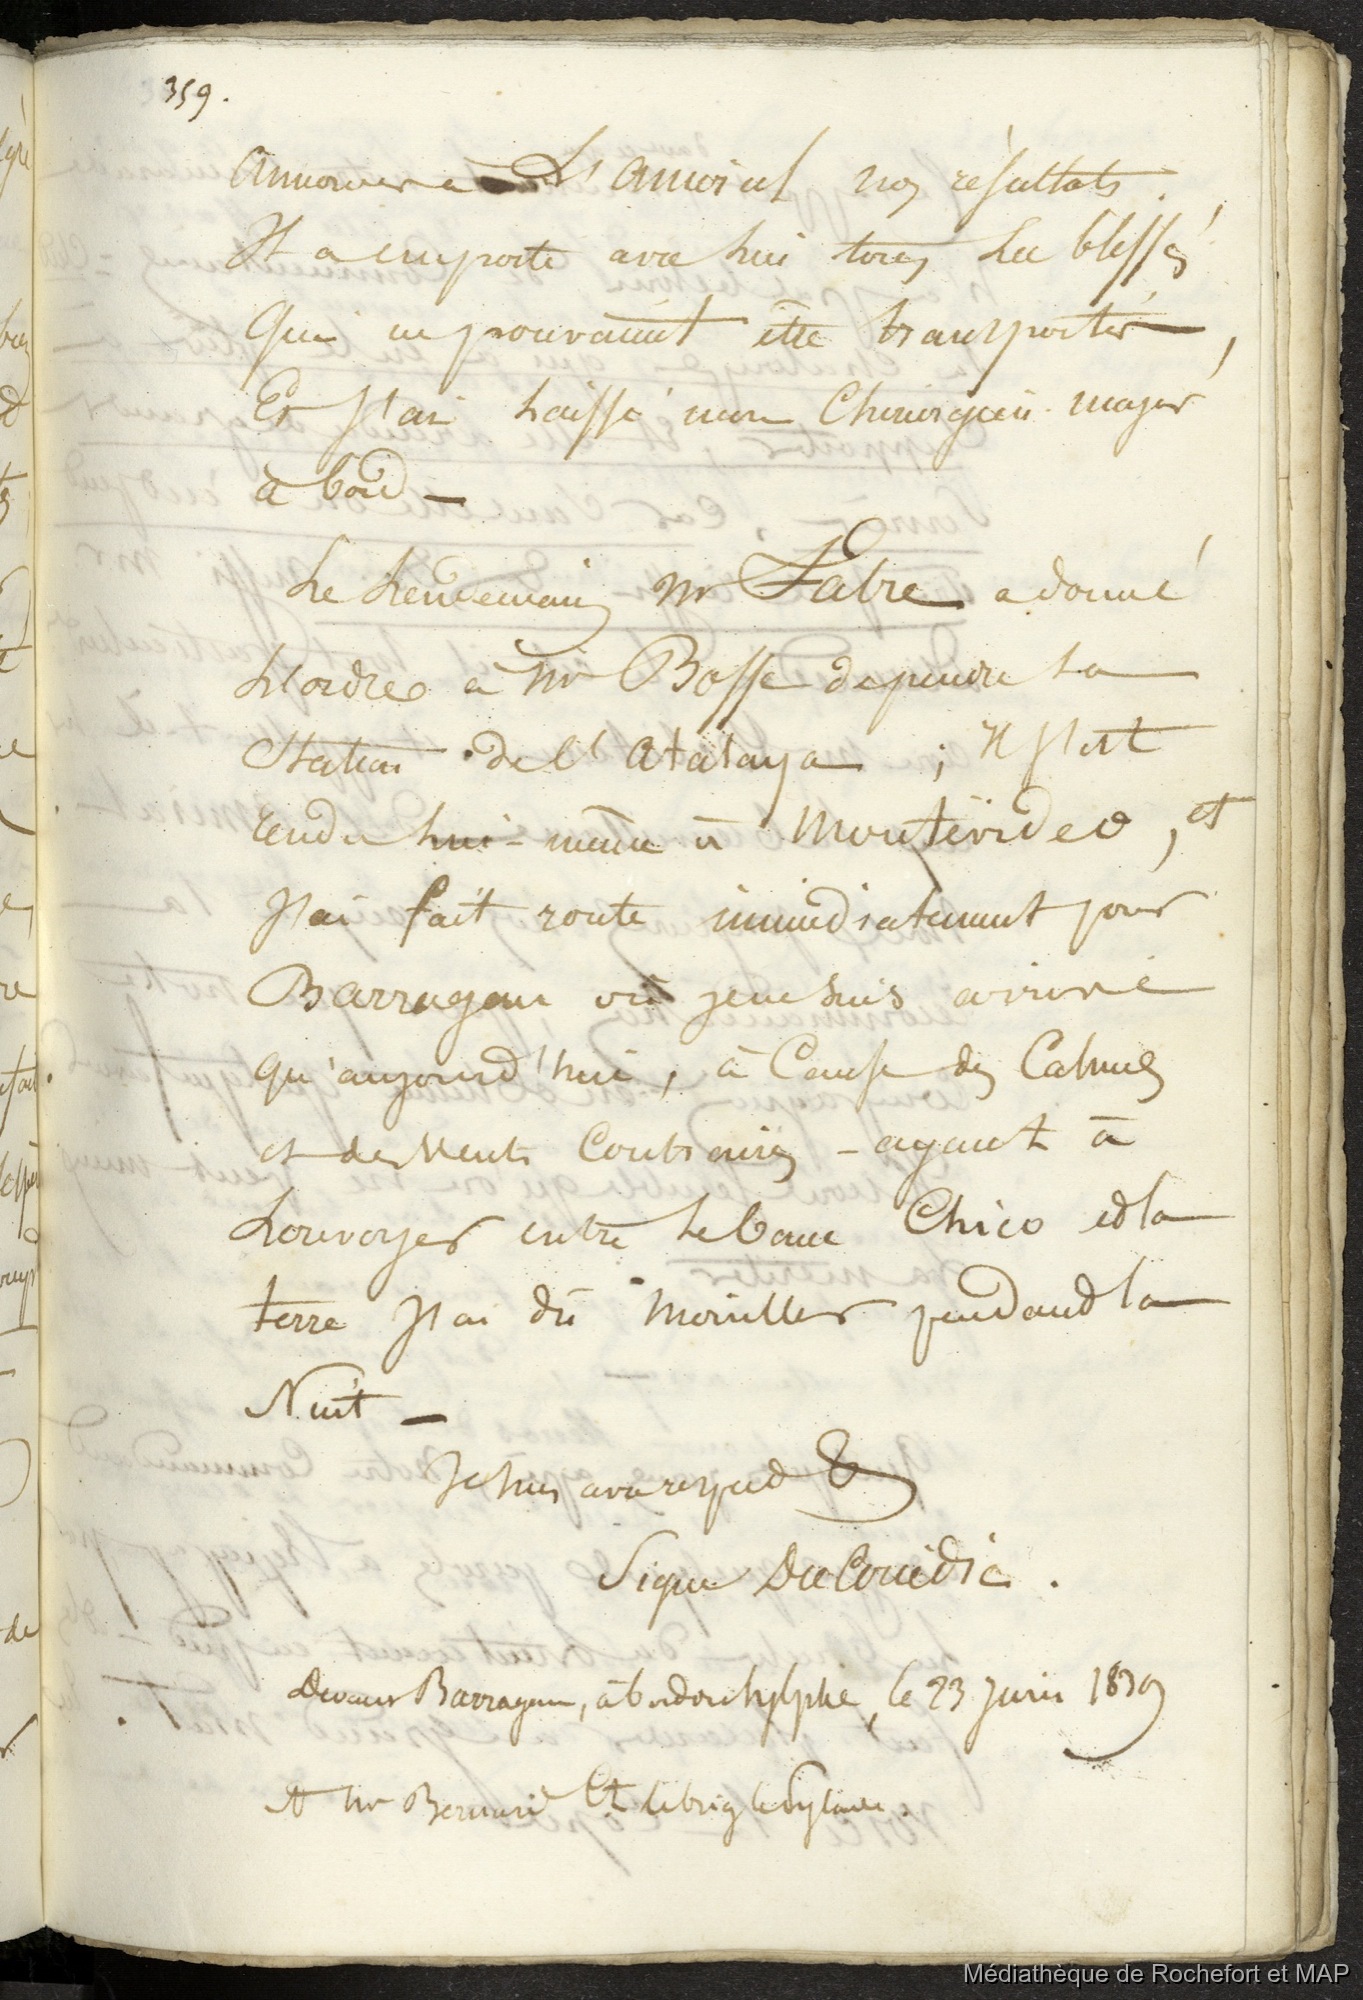 359.
annoncer à L'amiral nos résultats.
Il a emporté avec lui tous les blessés
qui ne pouvaient être transportés,
Et J'ai laissé mon Chirurgien major
à bord —
Le Lendemain Mr Fabre a donné
L'ordre à Mr Bosse de prendre la
Station de L'Atalaya ; Il s'est
rendu lui-même à Montévideo, et
J'ai fait route immédiatement pour
Barragan où je ne suis arrivé
qu'aujourd'hui, à Cause des Calmes
et des Vents Contraires – ayant à
Louvoyer entre le banc Chico et la
terre J'ai dû Mouiller pendant la
Nuit —
Je suis avec respect &
Signé Du Couëdic.
Devant Barragan, à bord du Sylphe, le 23 Juin 1839
A Mr Bernard Ct le brig le Sylphe.
Médiathèque de Rochefort et MAP